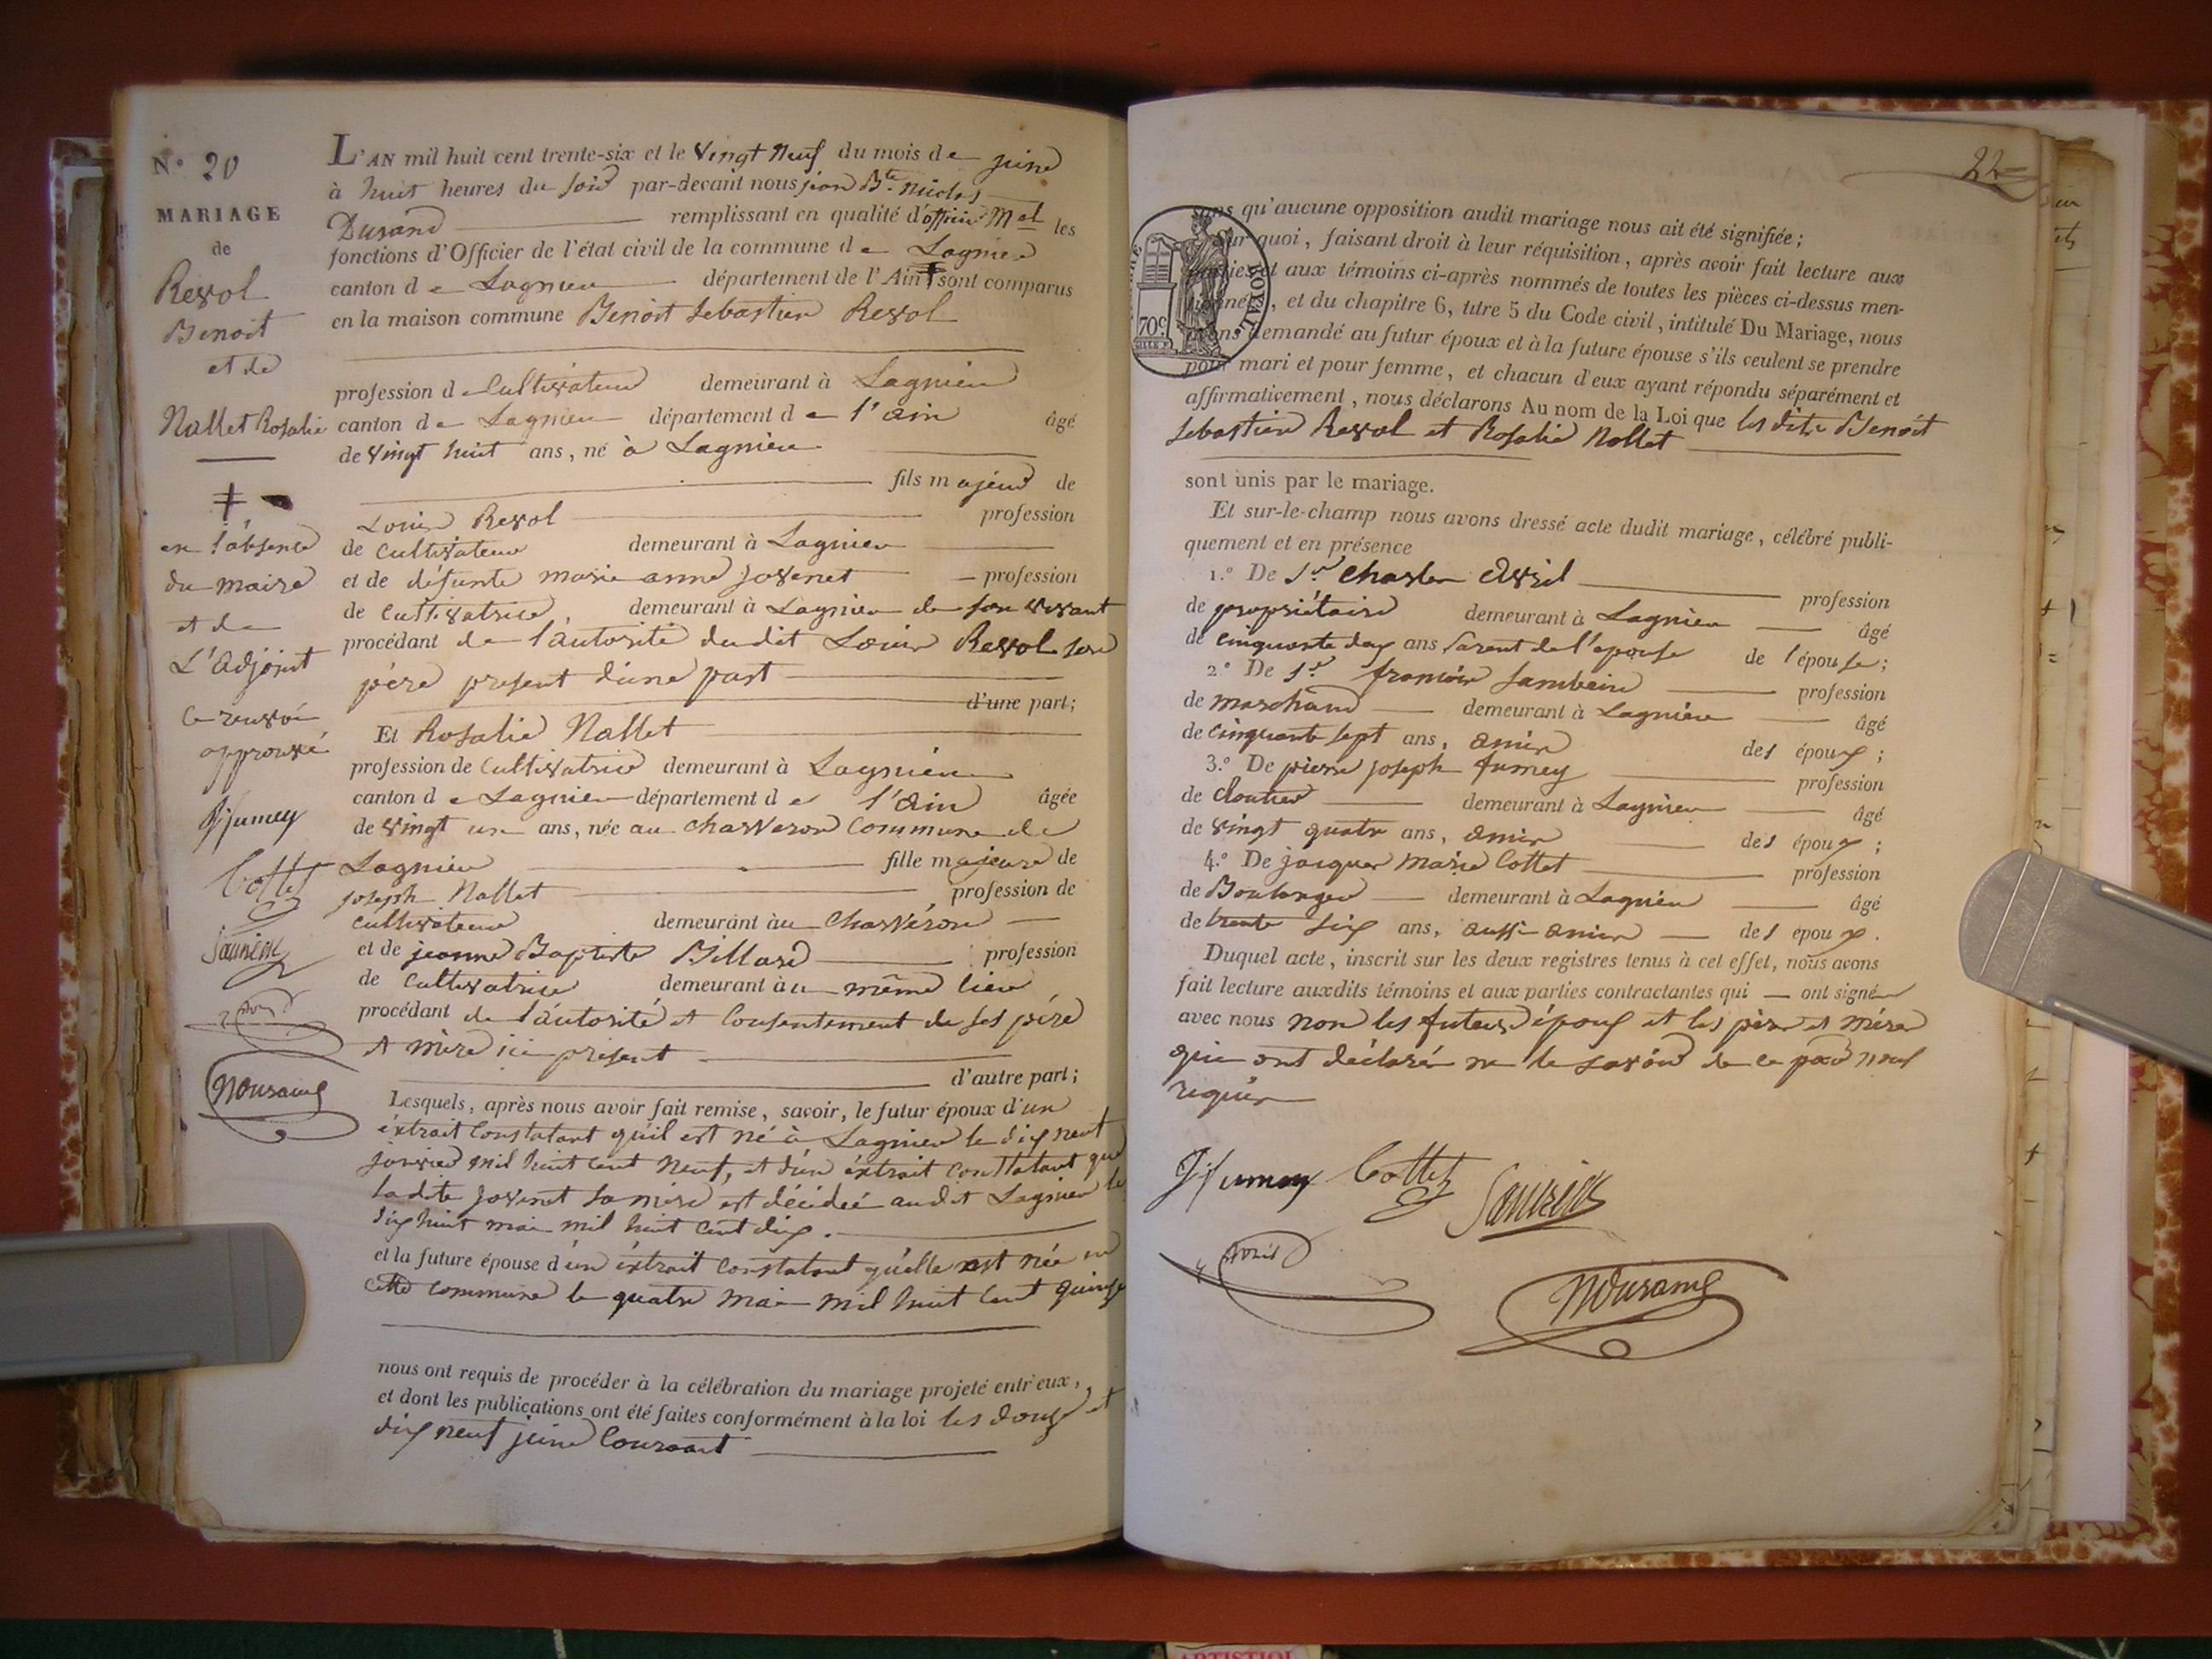 N.° 20
MARIAGE
de
Revol
Benoit
et de
Nallet Rosalie
en l'absence
du maire
et de
L'adjoint
le renvoi
approuvé
Fumey
Cottet
NDurand
L'AN mil huit cent trente-six et le vingt neuf du mois de juin
à huit heures du soir par-devant nous jean B.te nicolas
Durand remplissant en qualité d'officier M.al les
fonctions d'Officier de l'état civil de la commune de Lagnieu
canton de Lagnieu département de l'Ain sont comparus
en la maison commune Benoit Sebastien Revol
profession de Cultivateur demeurant à Lagnieu
canton de Lagnieu département de l'ain âgé
de vingt huit ans, né à Lagnieu
fils majeur de
Louis Revol profession
de cultivateur demeurant à Lagnieu
et de défunte marie anne Jovenet profession
de cultivatrice, demeurant à Lagnieu de son vivant
procédant de l'autorité dudit Louis Revol son
père present d'une part
d'une part;
Et Rosalie Nallet
profession de Cultivatrice demeurant à Lagnieu
canton de Lagnieu département de l'ain âgée
de vingt un ans, née au charveron Commune de
Lagnieu fille majeure de
joseph Nallet profession de
cultivateur demeurant au Charveron
et de jeanne Baptiste Billard profession
de Cultivatrice demeurant au même lieu
procédant de l'autorité et Consentement de ses père
et mère ici present
d'autre part;
Lesquels, après nous avoir fait remise, savoir, le futur époux d'un
extrait constatant qu'il est né à Lagnieu le dix neuf
janvier mil huit cent neuf, et d'un extrait constatant que
ladite jovenet sa mère est décédée audit Lagnieu le
dix huit mai mil huit cent dix.
et la future épouse d'un extrait constatant qu'elle est née en
cette commune le quatre mai mil huit cent quinze
nous ont requis de procéder à la célébration du mariage projeté entr'eux,
et dont les publications ont été faites conformément à la loi les douze et
dix neuf juin Courant
22
70c
ROYAL
sans qu'aucune opposition audit mariage nous ait été signifiée;
Sur quoi, faisant droit à leur réquisition, après avoir fait lecture aux
parties et aux témoins ci-après nommés de toutes les pièces ci-dessus men-
tionnées, et du chapitre 6, titre 5 du Code civil, intitulé Du Mariage, nous
avons demandé au futur époux et à la future épouse s'ils veulent se prendre
pour mari et pour femme, et chacun d'eux ayant répondu séparément et
affirmativement, nous déclarons Au nom de la Loi que les dits Benoit
Sebastien Revol et Rosalie Nallet
sont unis par le mariage.
Et sur-le-champ nous avons dressé acte dudit mariage, célébré publi-
quement et en présence
1.° De S.r Charles
de propriétaire demeurant à Lagnieu profession
de cinquante deux ans parent de l'epouse de l'épouse; âgé
2.° De S.r francois
de marchand demeurant à Lagnieu profession
de cinquante sept ans, amis des époux; âgé
3.° De pierre joseph fumey profession
de cloutier demeurant à Lagnieu âgé
de vingt quatre ans, amis des époux;
4.° De jacques Marie Cottet profession
de Boulanger demeurant à Lagnieu âgé
de trente six ans, aussi amis des époux.
Duquel acte, inscrit sur les deux registres tenus à cet effet, nous avons
fait lecture auxdits témoins et aux parties contractantes qui ont signé
avec nous non les futurs époux et les père et mère
qui ont déclaré ne le savoir de ce par nous
requis
Fumey Cottet
NDurand